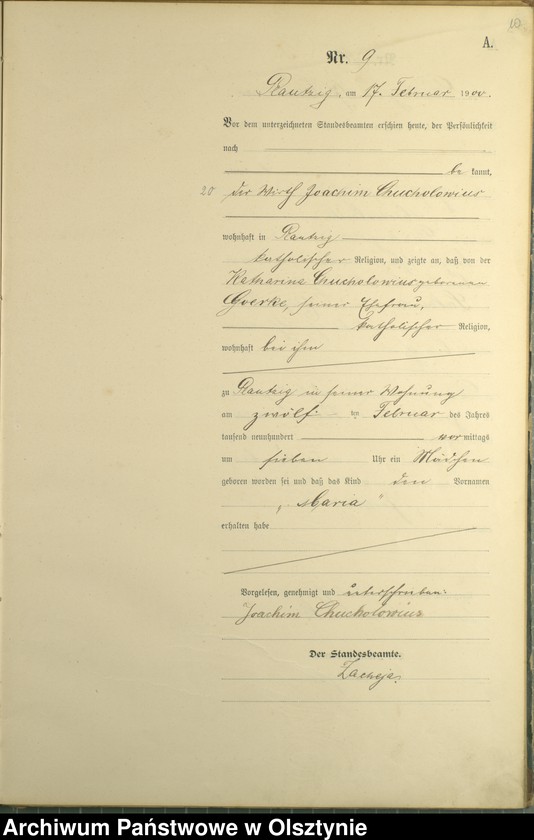 10
A.
Nr. 9
Rautzig, am 17. Februar 1900.
Vor dem unterzeichneten Standesbeamten erschien heute, der Persönlichkeit
nach
be kannt,
20 der Wirth Joachim Chucholowius
wohnhaft in Rautzig
katholischer Religion, und zeigte an, daß von der
Katharina Chucholowius geborenen
Goerke, seiner Ehefrau,
katholischer Religion,
wohnhaft bei ihm
zu Rautzig in seiner Wohnung
am zwölf ten Februar des Jahres
tausend neunhundert vor mittags
um sieben Uhr ein Mädchen
geboren worden sei und daß das Kind den Vornamen
„Maria“
erhalten habe
Vorgelesen, genehmigt und unterschrieben:
Joachim Chucholowius
Der Standesbeamte.
Archiwum Państwowe w Olsztynie